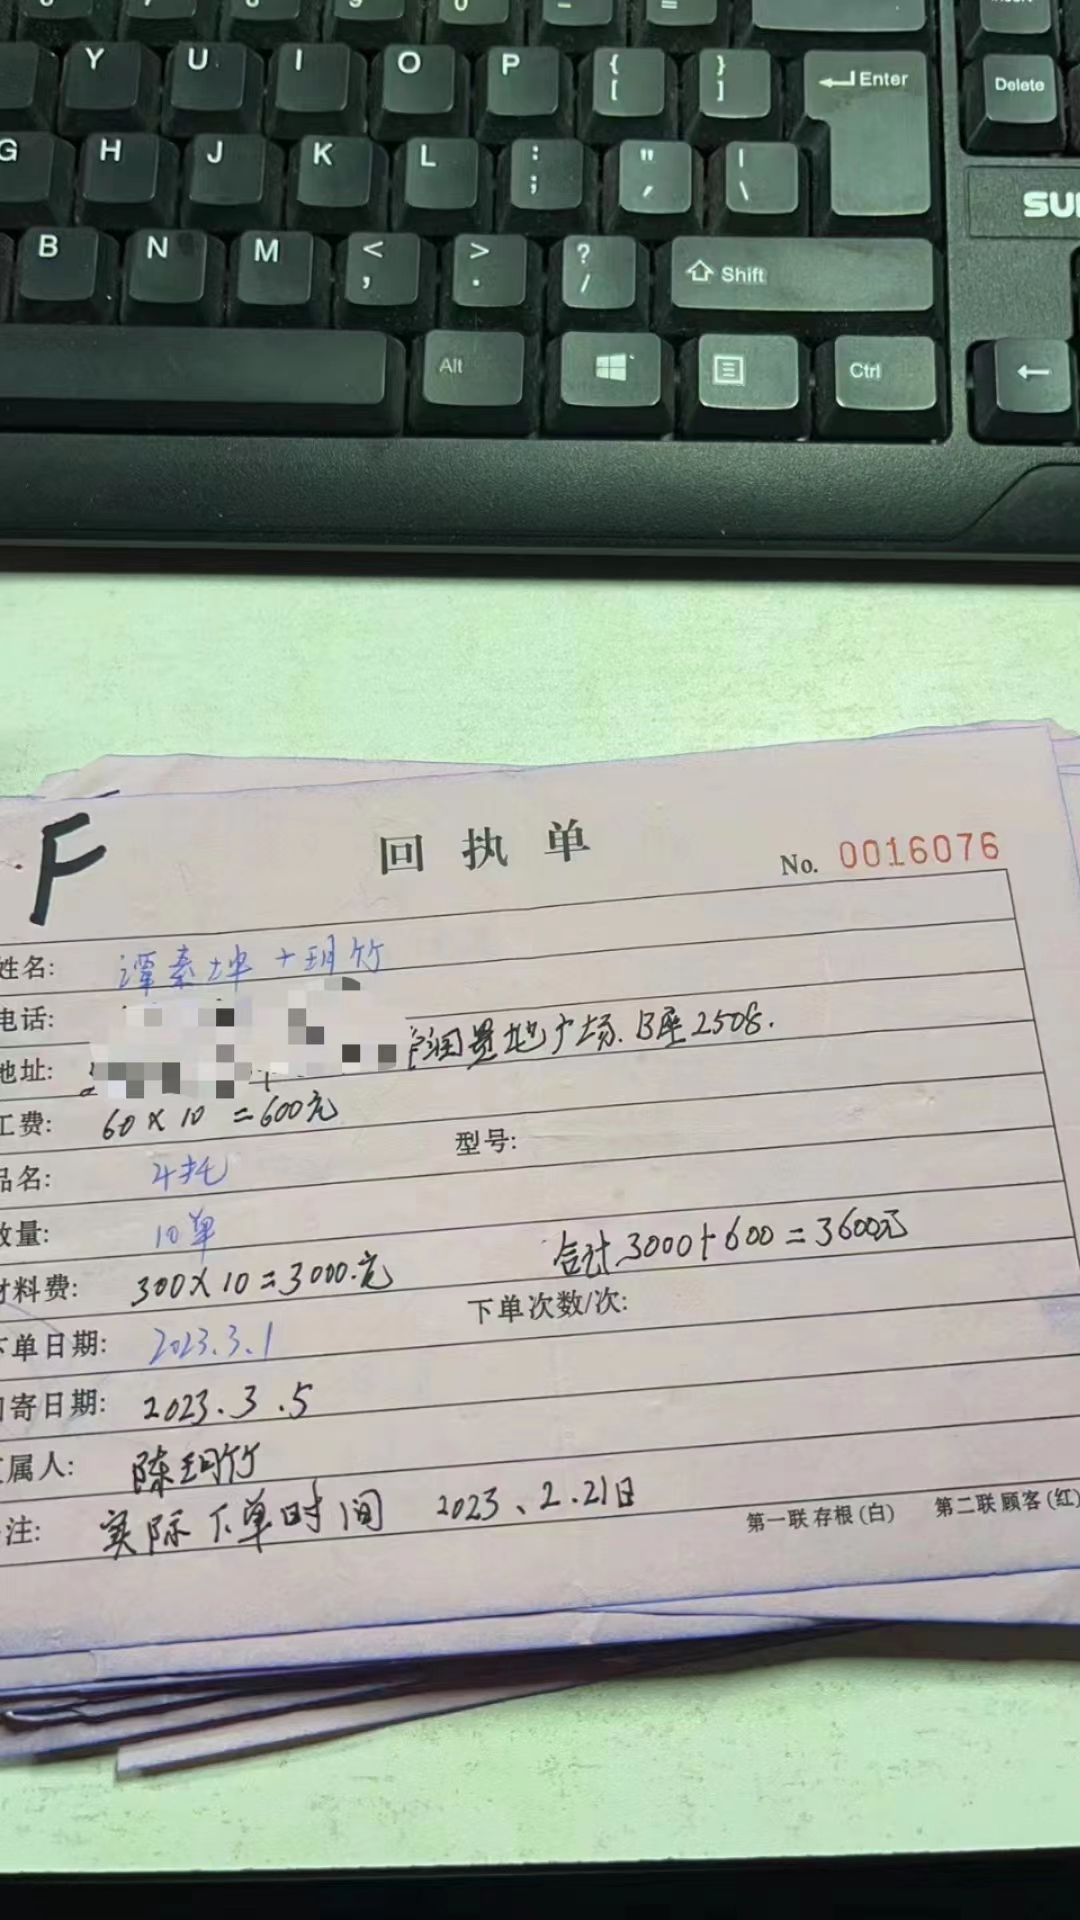 Y U I O P { [ } ] Enter Delete
G H J K L : ; " ' | \
B N M < , > . ? / Shift
Alt Ctrl
F
回执单
No. 0016076
姓名: 谭素坤+玥竹
电话:
地址: 润置地广场.B座2508.
工费: 60×10=600元
品名: 4托 型号:
数量: 10单
材料费: 300×10=3000.元 合计3000+600=3600元
下单日期: 2023.3.1 下单次数/次:
寄日期: 2023.3.5
属人: 陈玥竹
注: 实际下单时间 2023、2.21日
第一联 存根(白) 第二联 顾客(红)